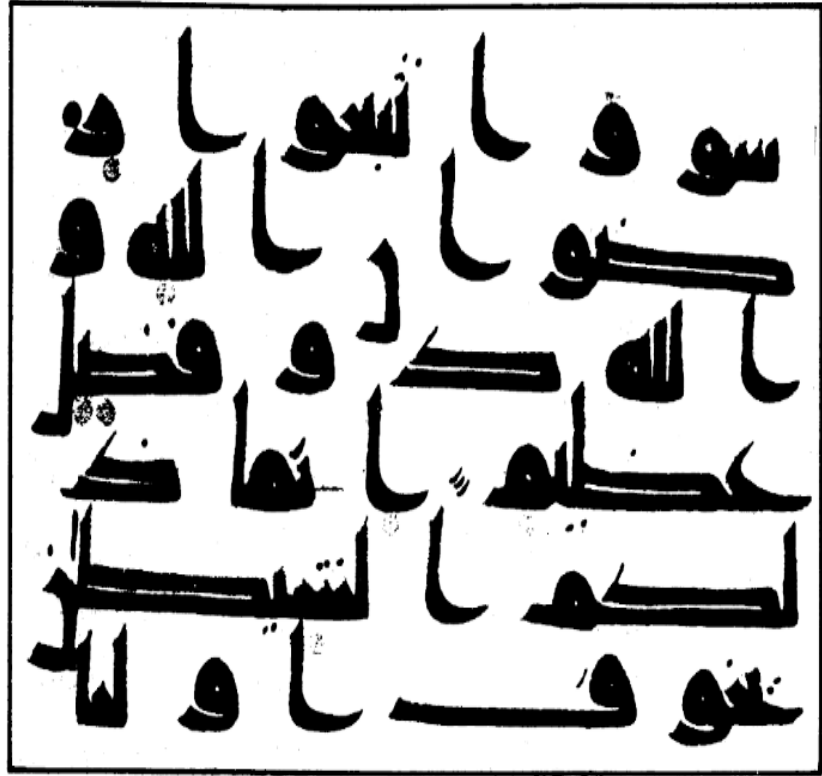 سو واتبعوا ر
ضوان الله و
الله ذو فضل
عظيم انما ذ
لكم الشيطن
يخوف اوليا